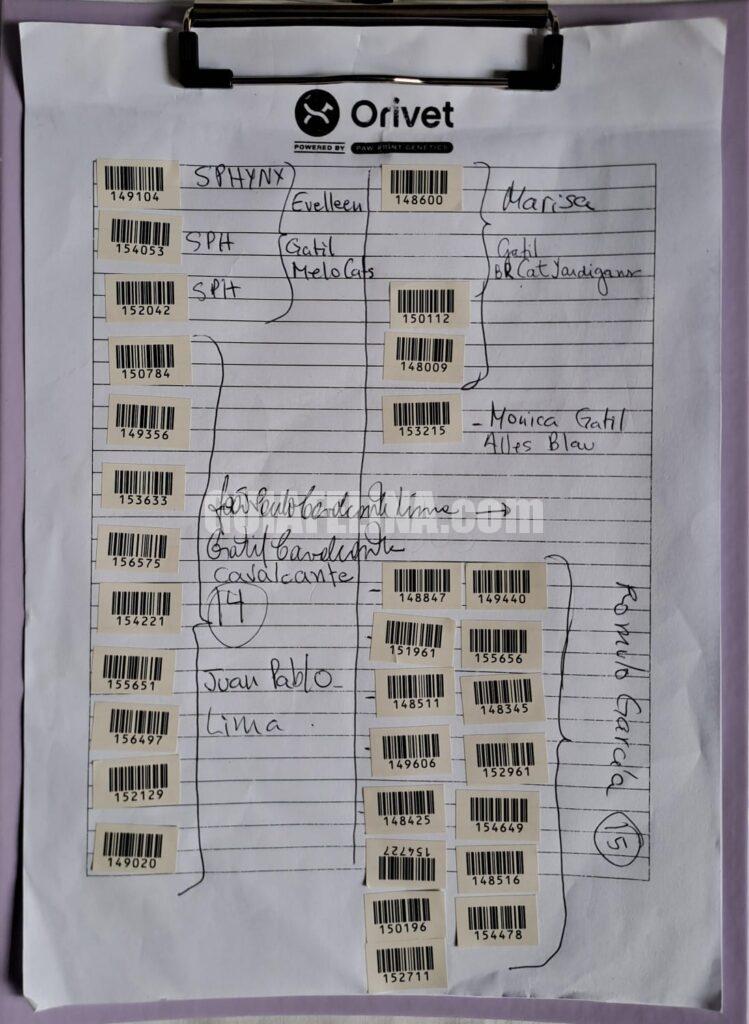 Orivet
POWERED BY PAW PRINT GENETICS
149104 SPHYNX
154053 SPH
152042 SPH
Evelleen
Gatil
MeloCats
150784
149356
153633
156575
154221
155651
156497
152129
149020
Gatil Cavalcante
Cavalcante
14
Juan Pablo
Lima
148600
150112
148009
Marisa
Gatil
BR Cat
153215 - Monica Gatil
Alles Blau
148847 149440
151961 155656
148511 148345
149606 152961
148425 154649
154727 148516
150196 154478
152711
Romulo García
15
.com